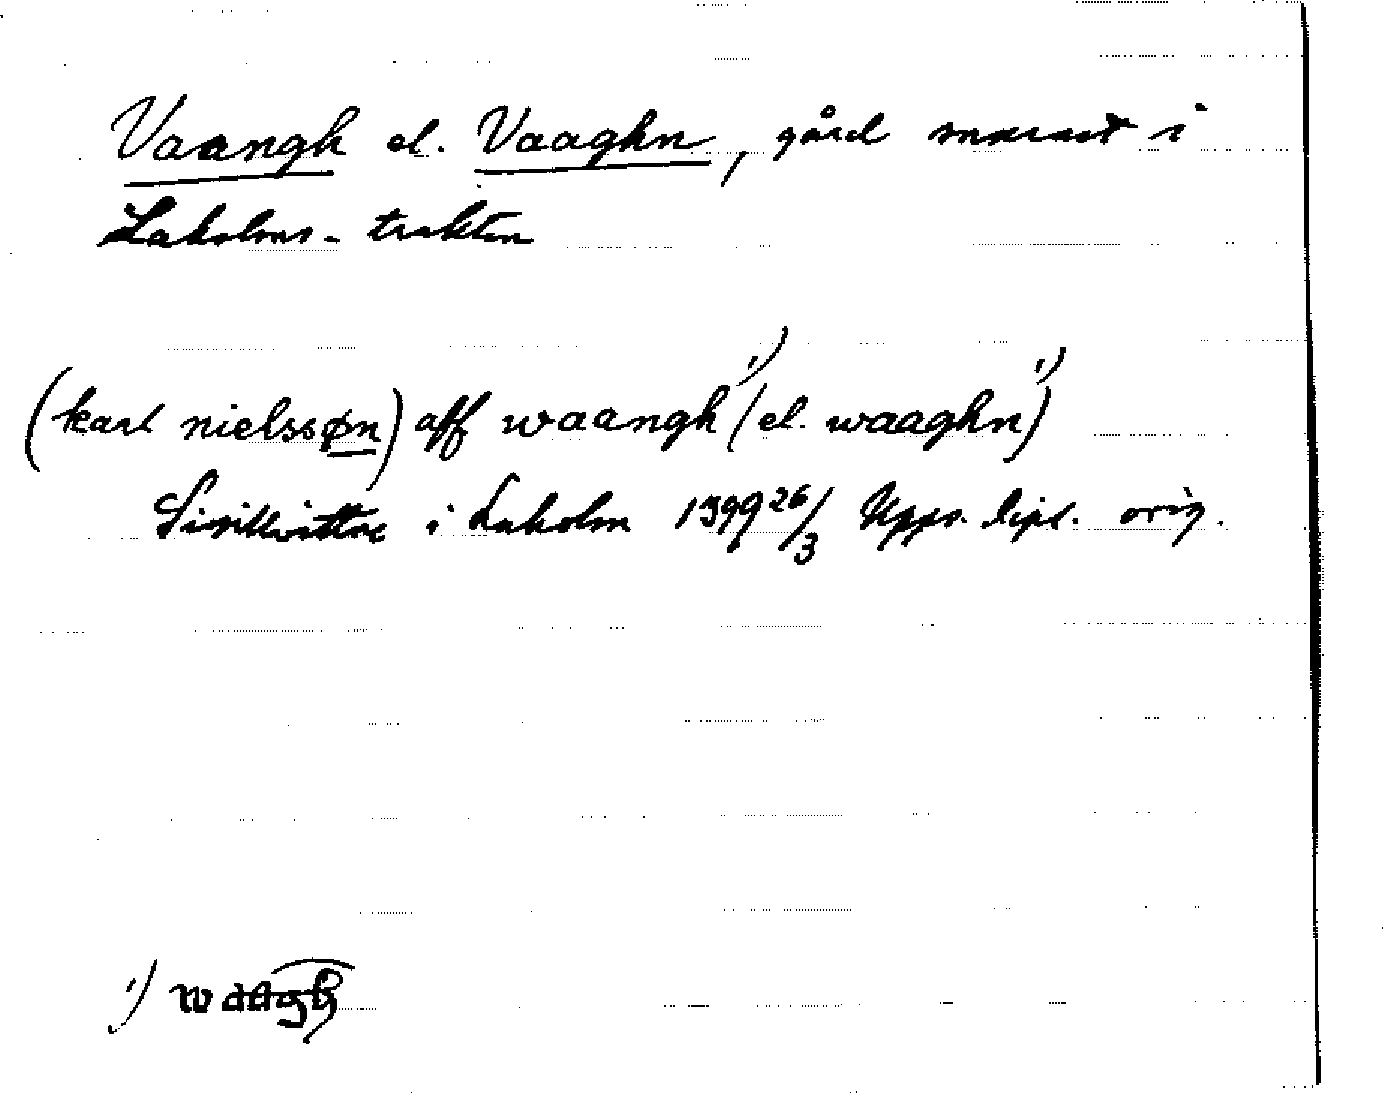 Vaangh el. Vaaghn, gård snarast i
Laholms-trakten
(karl nielssøn) aff waangh¹) (el. waaghn)¹)
i Laholm 1399 26/3 Upps. dipl. orig.
¹) waagh